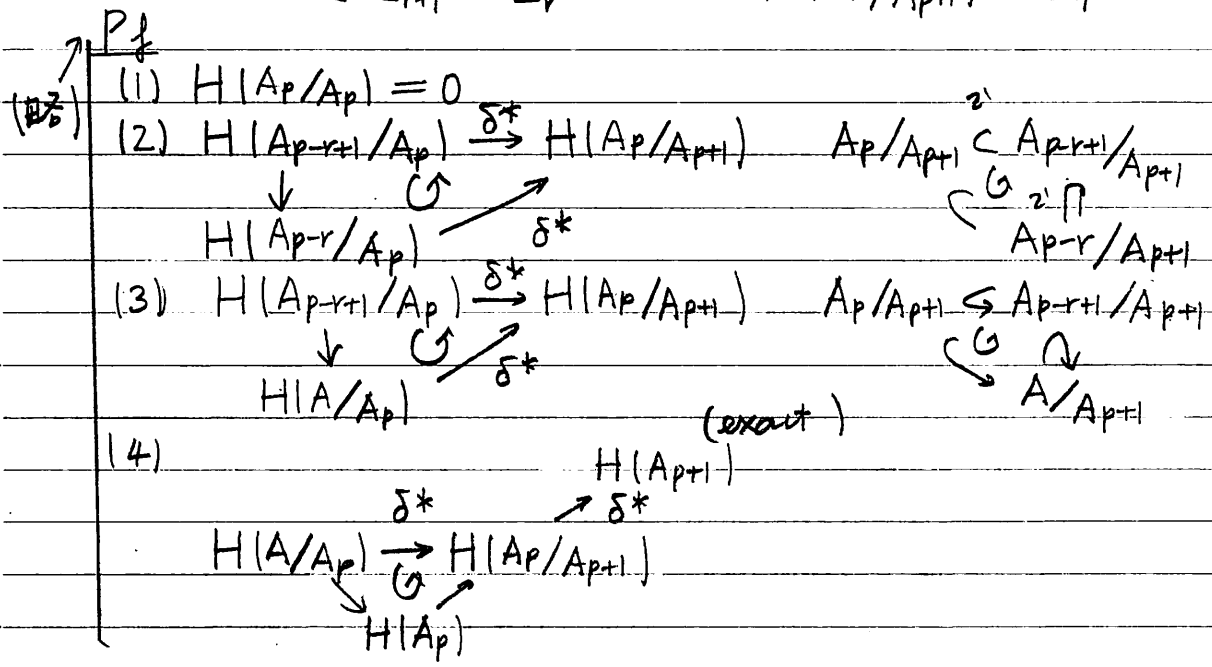 Pf
(略)
(1) H(Ap/Ap) = 0
(2) H(Ap-r+1/Ap) →δ* H(Ap/Ap+1) Ap/Ap+1 ⊂ Ap-r+1/Ap+1
↓ ↺ ↗ δ*
H(Ap-r/Ap) Ap-r/Ap+1
(3) H(Ap-r+1/Ap) →δ* H(Ap/Ap+1) Ap/Ap+1 ↪ Ap-r+1/Ap+1
↓ ↺ ↗ δ*
H(A/Ap) A/Ap+1
(exact)
(4) H(Ap+1)
δ* ↗ δ*
H(A/Ap) → H(Ap/Ap+1)
↘ ↺ ↗
H(Ap)